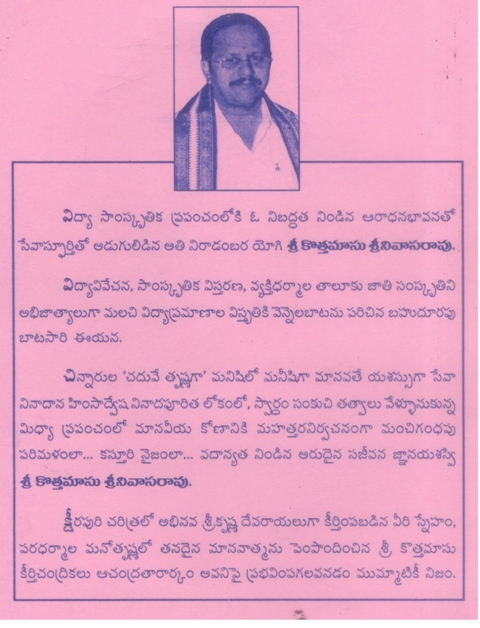 విద్యా సాంస్కృతిక ప్రపంచంలోకి ఓ నిబద్ధత నిండిన ఆరాధనభావనతో
సేవాస్ఫూర్తితో అడుగులిడిన అతి నిరాడంబర యోగి శ్రీ కొత్తమాసు శ్రీనివాసరావు.
విద్యావివేచన, సాంస్కృతిక విస్తరణ, వ్యక్తిధర్మాల తాలూకు జాతి సంస్కృతిని
అభిజాత్యాలుగా మలచి విద్యాప్రమాణాల విస్తృతికి వెన్నెలబాటను పరిచిన బహుదూరపు
బాటసారి ఈయన.
చిన్నారుల 'చదువే తృష్ణగా' మనిషిలో మనీషిగా మానవతే యశస్సుగా సేవా
నినాదాన హింసాద్వేష నినాదపూరిత లోకంలో, స్వార్థం సంకుచి తత్వాలు వేళ్ళూనుకున్న
మిధ్యా ప్రపంచంలో మానవీయ కోణానికి మహత్తరనిర్వచనంగా మంచిగంధపు
పరిమళంలా... కస్తూరి నైజంలా... వదాన్యత నిండిన అరుదైన సజీవన జ్ఞానయశస్వి
శ్రీ కొత్తమాసు శ్రీనివాసరావు.
క్షీరపురి చరిత్రలో అభినవ శ్రీకృష్ణ దేవరాయలుగా కీర్తింపబడిన వీరి స్నేహం,
పరధర్మాల మనోతృష్ణలో తనదైన మానవాత్మను పెంపొందించిన శ్రీ కొత్తమాసు
కీర్తిచంద్రికలు ఆచంద్రతారార్కం అవనిపై ప్రభవింపగలవనడం ముమ్మాటికీ నిజం.